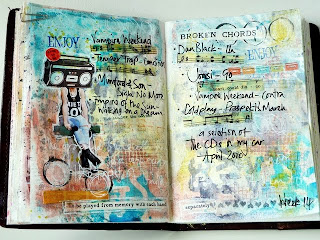 ENJOY
Vampire Weekend
Temper Trap - Conditions
Mumford & Son -
Sigh No More
Empire of the Sun -
Walking on a Dream
to be played from memory with each hand
BROKEN CHORDS
Dan Black - Un
ENJOY
Jonsi - Go
Vampire Weekend - Contra
Coldplay - Prospekt's March
a selection of
the CDs in my car
April 2010
separately
Week 14